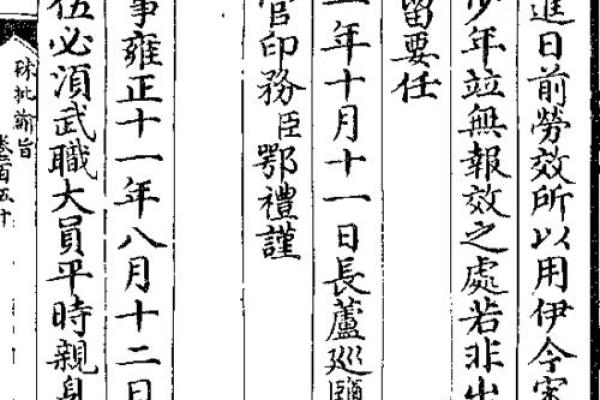 進日前勞效所以用伊今
少年竝無報效之處若非
留要任
年十月十一日長蘆巡鹽
管印務臣鄂禮謹
事雍正十一年八月十二日
伍必須武職大員平時親身
硃批諭旨
卷二百五十